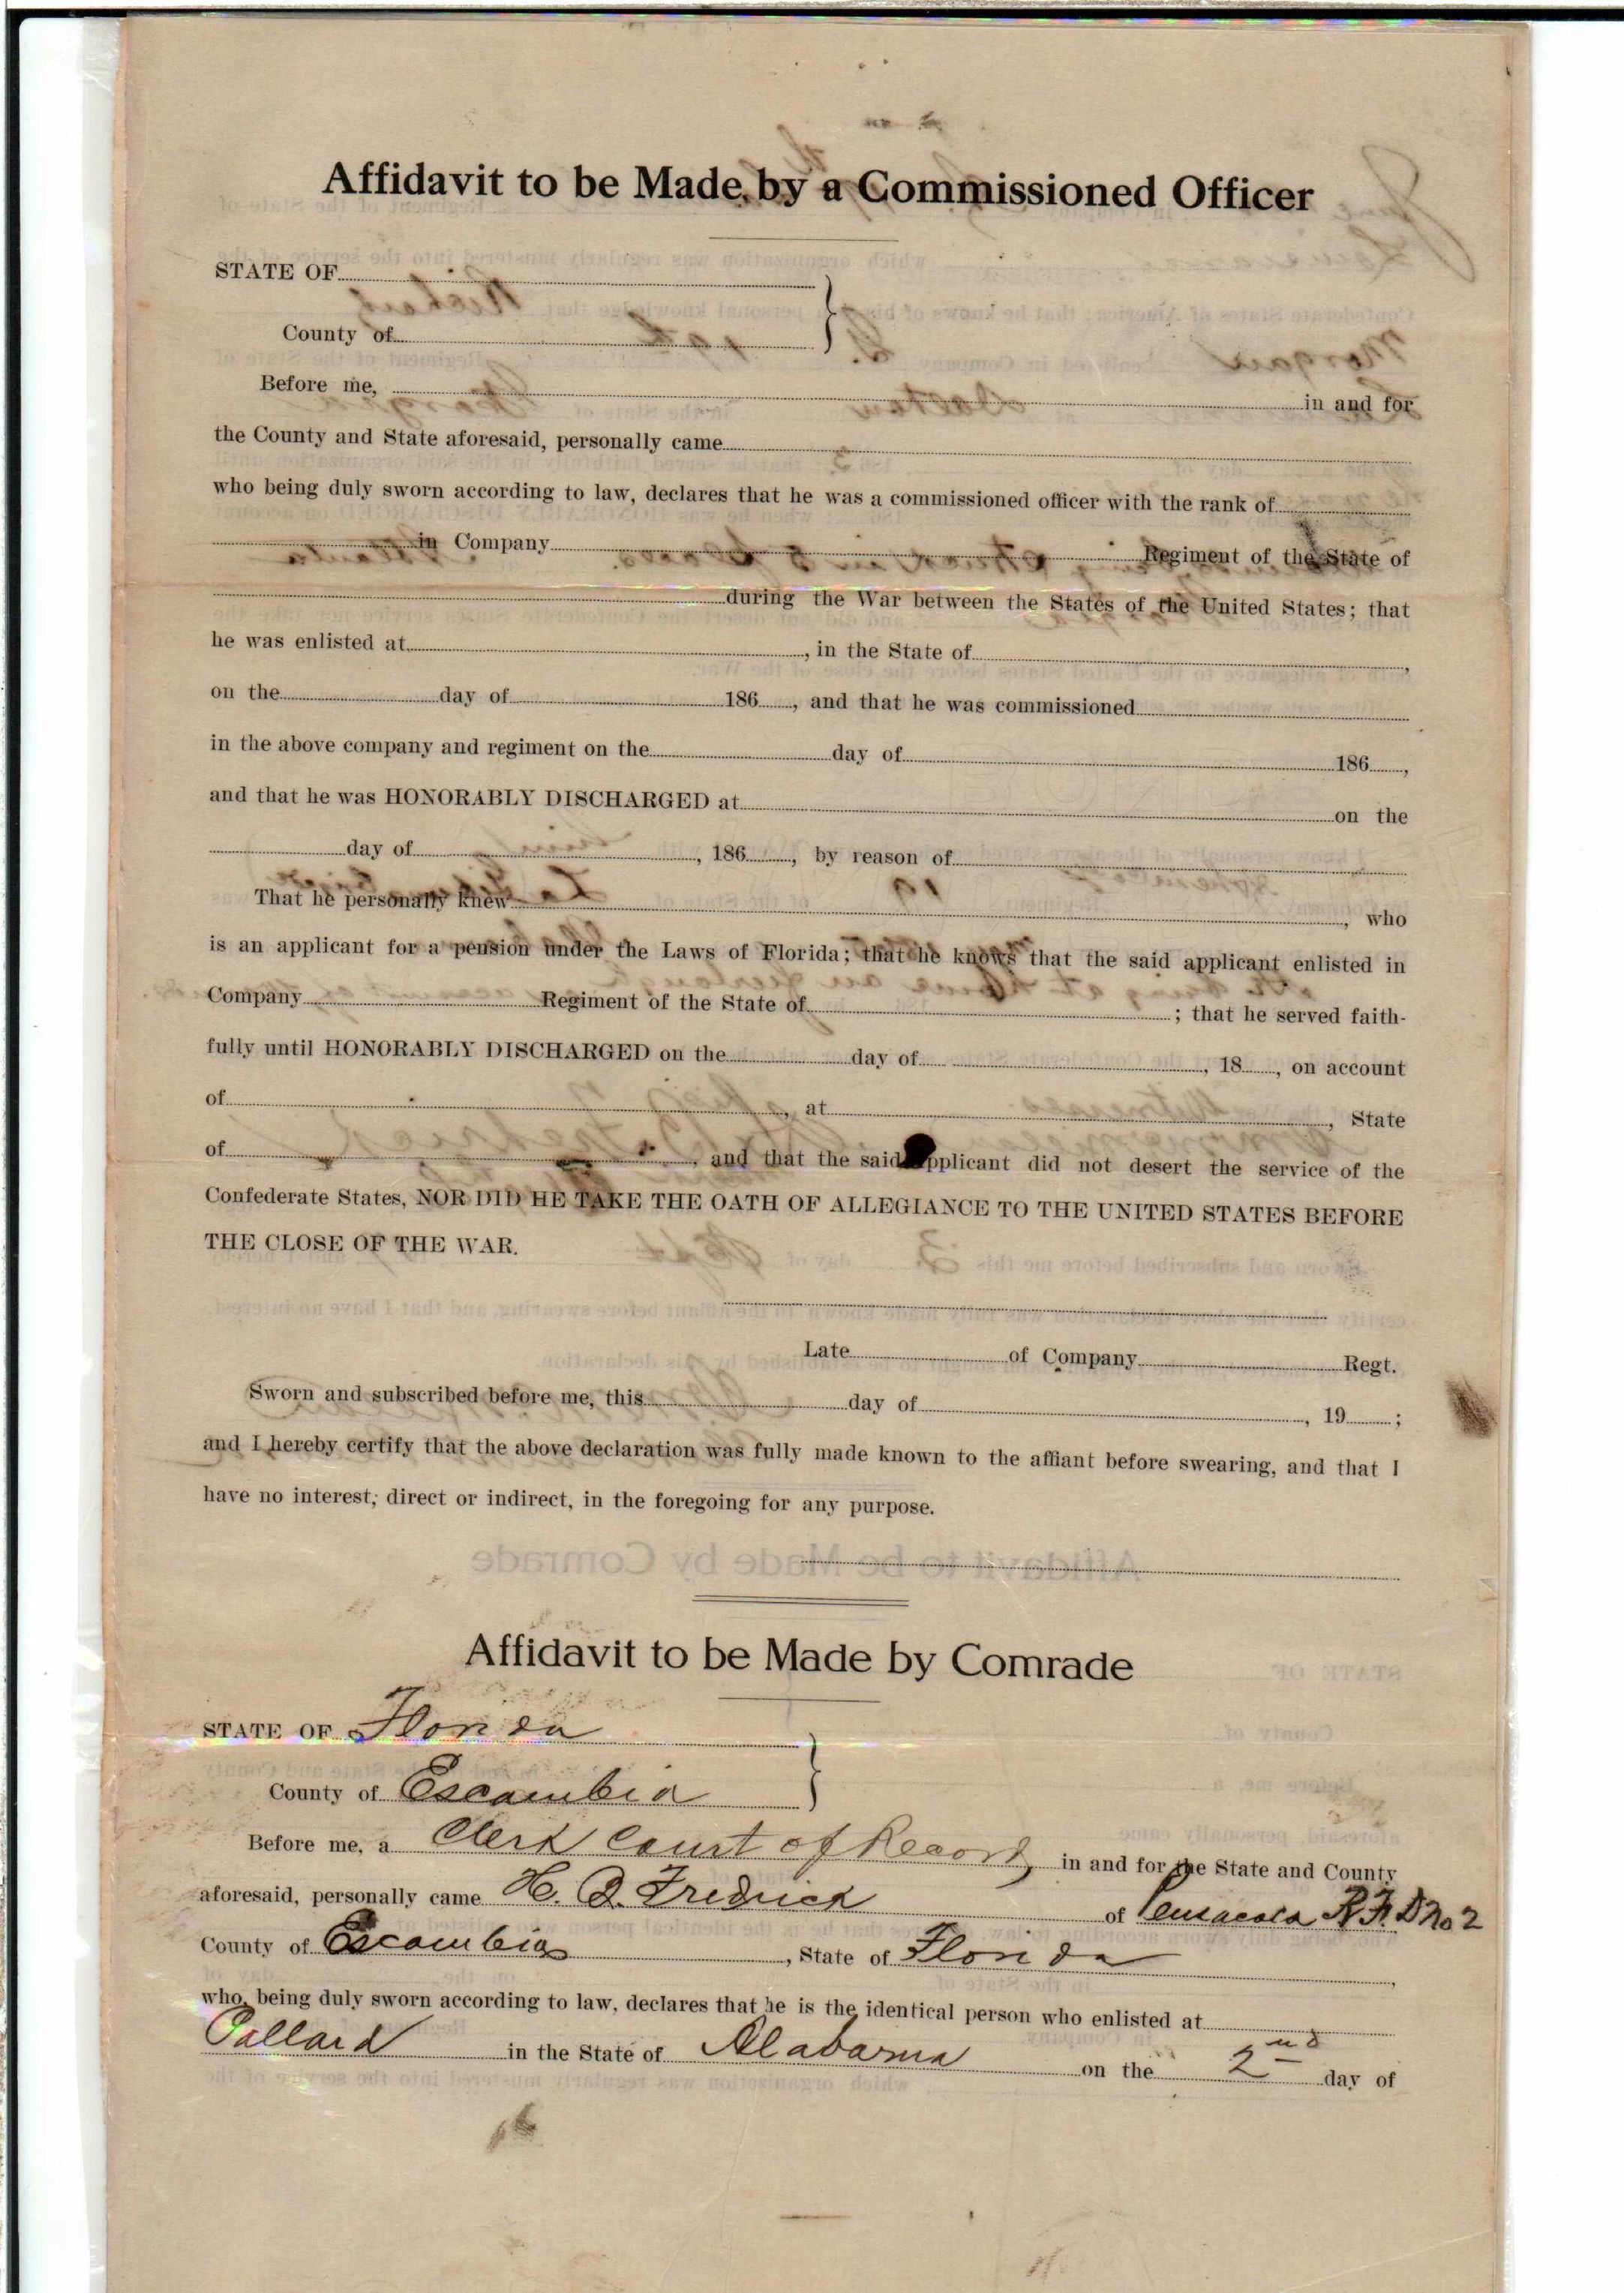 Affidavit to be Made by a Commissioned Officer
STATE OF
County of
Before me, in and for
the County and State aforesaid, personally came
who being duly sworn according to law, declares that he was a commissioned officer with the rank of
in Company Regiment of the State of
during the War between the States of the United States; that
he was enlisted at , in the State of ,
on the day of 186 , and that he was commissioned
in the above company and regiment on the day of 186 ,
and that he was HONORABLY DISCHARGED at on the
day of , 186 , by reason of
That he personally knew , who
is an applicant for a pension under the Laws of Florida; that he knows that the said applicant enlisted in
Company Regiment of the State of ; that he served faith-
fully until HONORABLY DISCHARGED on the day of , 18 , on account
of , at , State
of , and that the said applicant did not desert the service of the
Confederate States, NOR DID HE TAKE THE OATH OF ALLEGIANCE TO THE UNITED STATES BEFORE
THE CLOSE OF THE WAR.
Late of Company Regt.
Sworn and subscribed before me, this day of , 19 ;
and I hereby certify that the above declaration was fully made known to the affiant before swearing, and that I
have no interest, direct or indirect, in the foregoing for any purpose.
Affidavit to be Made by Comrade
STATE OF Florida
County of Escambia
Before me, a Clerk Court of Record, in and for the State and County
aforesaid, personally came H. B. Fredrick of Pensacola R.F.D No 2
County of Escambia , State of Florida ,
who, being duly sworn according to law, declares that he is the identical person who enlisted at
Pollard in the State of Alabama on the 2nd day of